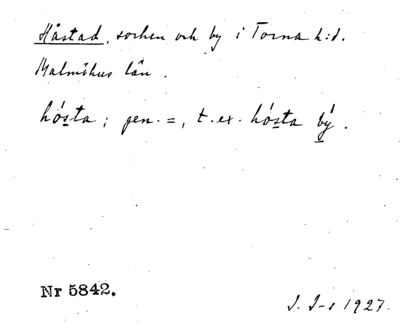 Håstad, socken och by i Torna h:d.
Malmöhus län.
hósta; gen. =, t. ex. hósta bý.
Nr 5842.
J. I-s 1927.